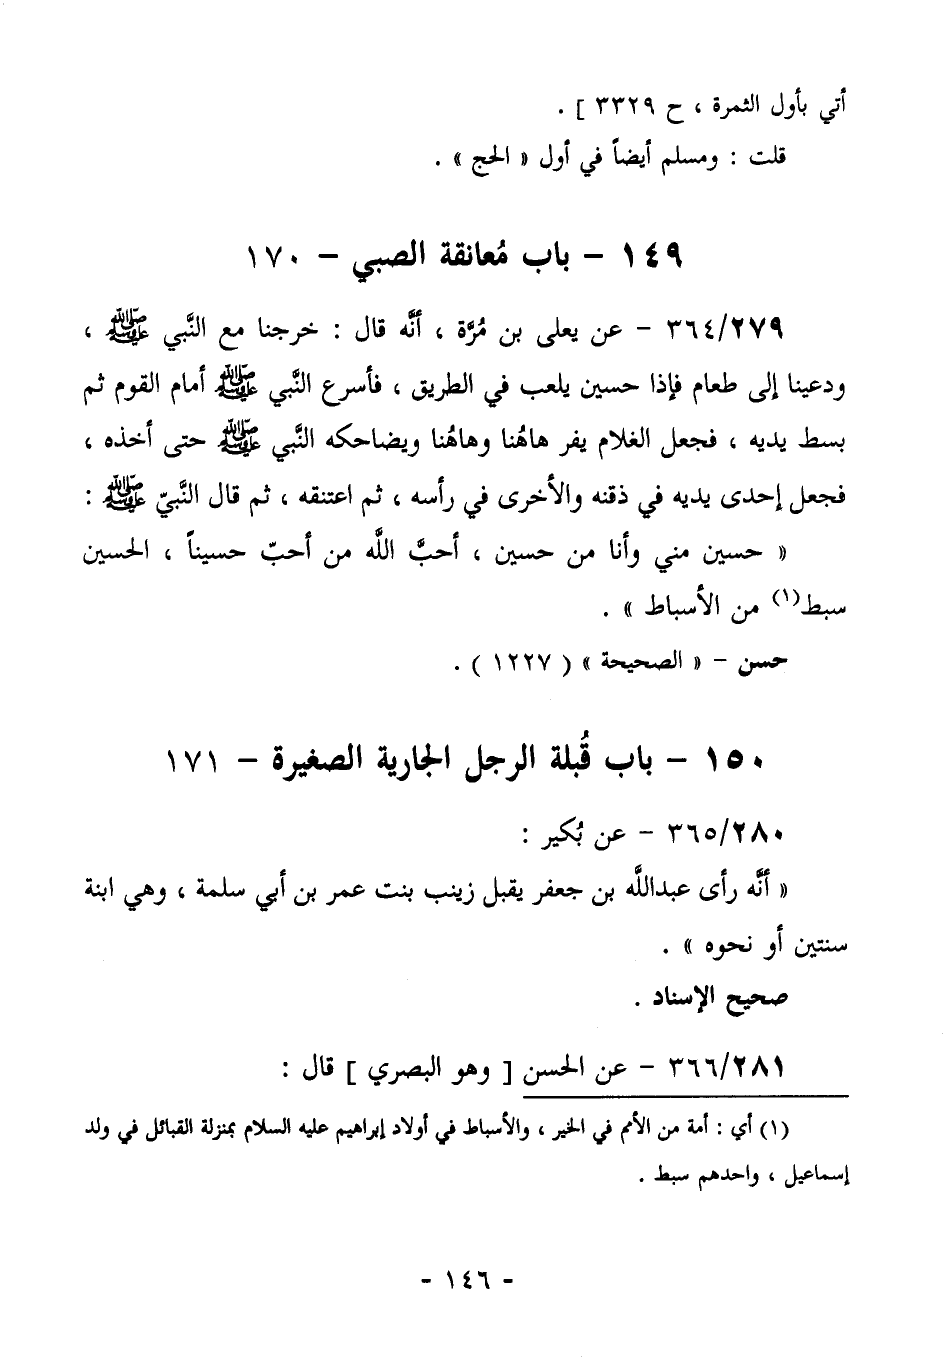 أتي بأول الثمرة ، ح ٣٣٢٩ ] .
قلت : ومسلم أيضاً في أول « الحج » .
١٤٩ – باب مُعانقة الصبي – ١٧٠
٣٦٤/٢٧٩ – عن يعلى بن مُرَّة ، أنَّه قال : خرجنا مع النَّبي ﷺ ،
ودعينا إلى طعام فإذا حسين يلعب في الطريق ، فأسرع النَّبي ﷺ أمام القوم ثم
بسط يديه ، فجعل الغلام يفر هاهُنا وهاهُنا ويضاحكه النَّبي ﷺ حتى أخذه ،
فجعل إحدى يديه في ذقنه والأخرى في رأسه ، ثم اعتنقه ، ثم قال النَّبيّ ﷺ :
« حسين مني وأنا من حسين ، أحبَّ اللَّه من أحبّ حسيناً ، الحسين
سبط(١) من الأسباط » .
حسن – « الصحيحة » ( ١٢٢٧ ) .
١٥٠ – باب قُبلة الرجل الجارية الصغيرة – ١٧١
٣٦٥/٢٨٠ – عن بُكير :
« أنَّه رأى عبداللَّه بن جعفر يقبل زينب بنت عمر بن أبي سلمة ، وهي ابنة
سنتين أو نحوه » .
صحيح الإسناد .
٣٦٦/٢٨١ – عن الحسن [ وهو البصري ] قال :
(١) أي : أمة من الأمم في الخير ، والأسباط في أولاد إبراهيم عليه السلام بمنزلة القبائل في ولد
إسماعيل ، واحدهم سبط .
- ١٤٦ -